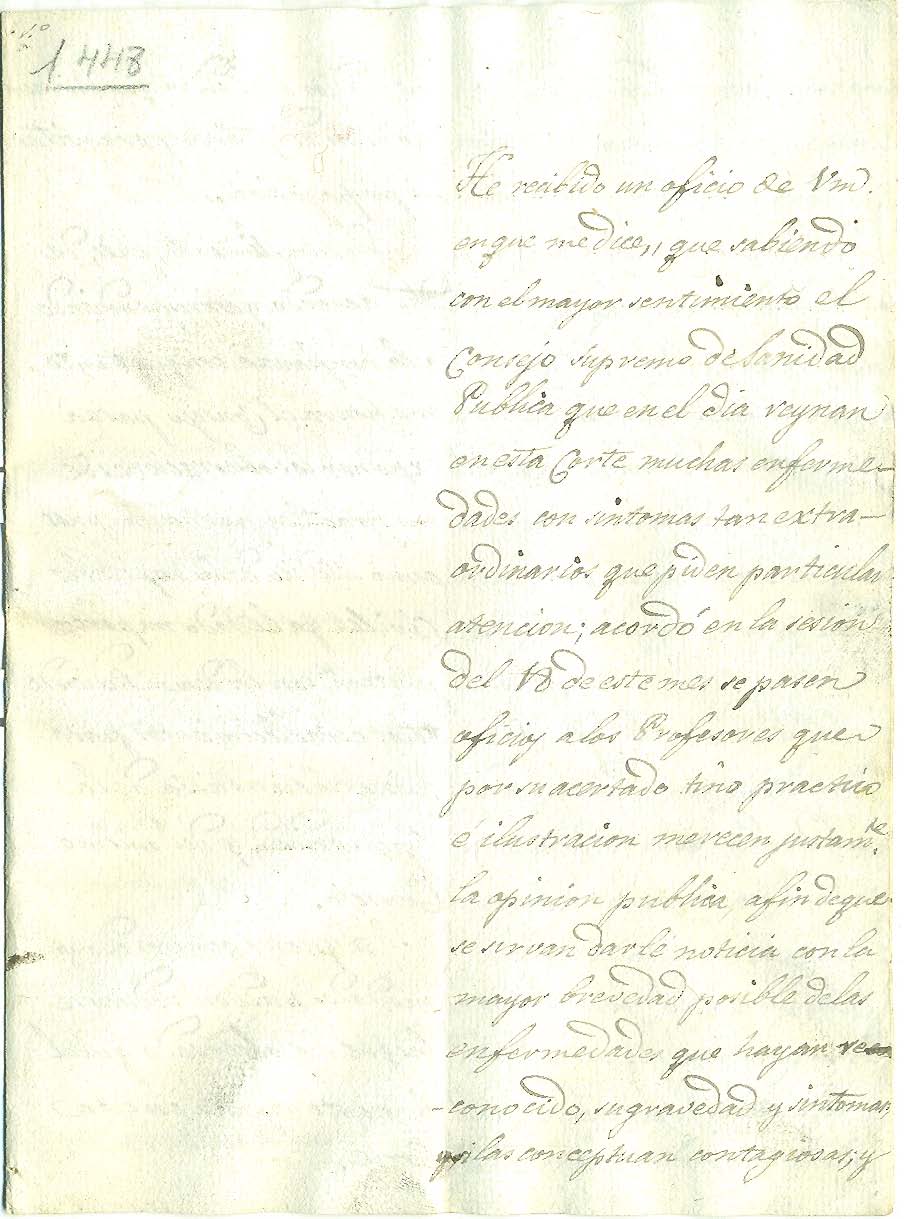 1.448
He recibido un oficio de Vm.
en que me dice,, que sabiendo
con el mayor sentimiento el
Consejo Supremo de Sanidad
Publica que en el dia reynan
en esta Corte muchas enferme-
dades con sintomas tan extra-
ordinarios que piden particular
atencion; acordó en la sesion
del 18 de este mes se pasen
oficios a los Profesores que
por su acertado tino practico
é ilustracion merecen justamte.
la opinion publica, afin de que
se sirvan darle noticia con la
mayor brevedad posible de las
enfermedades que hayan re
-conocido, su gravedad y sintomas,
y si las conceptuan contagiosas; y